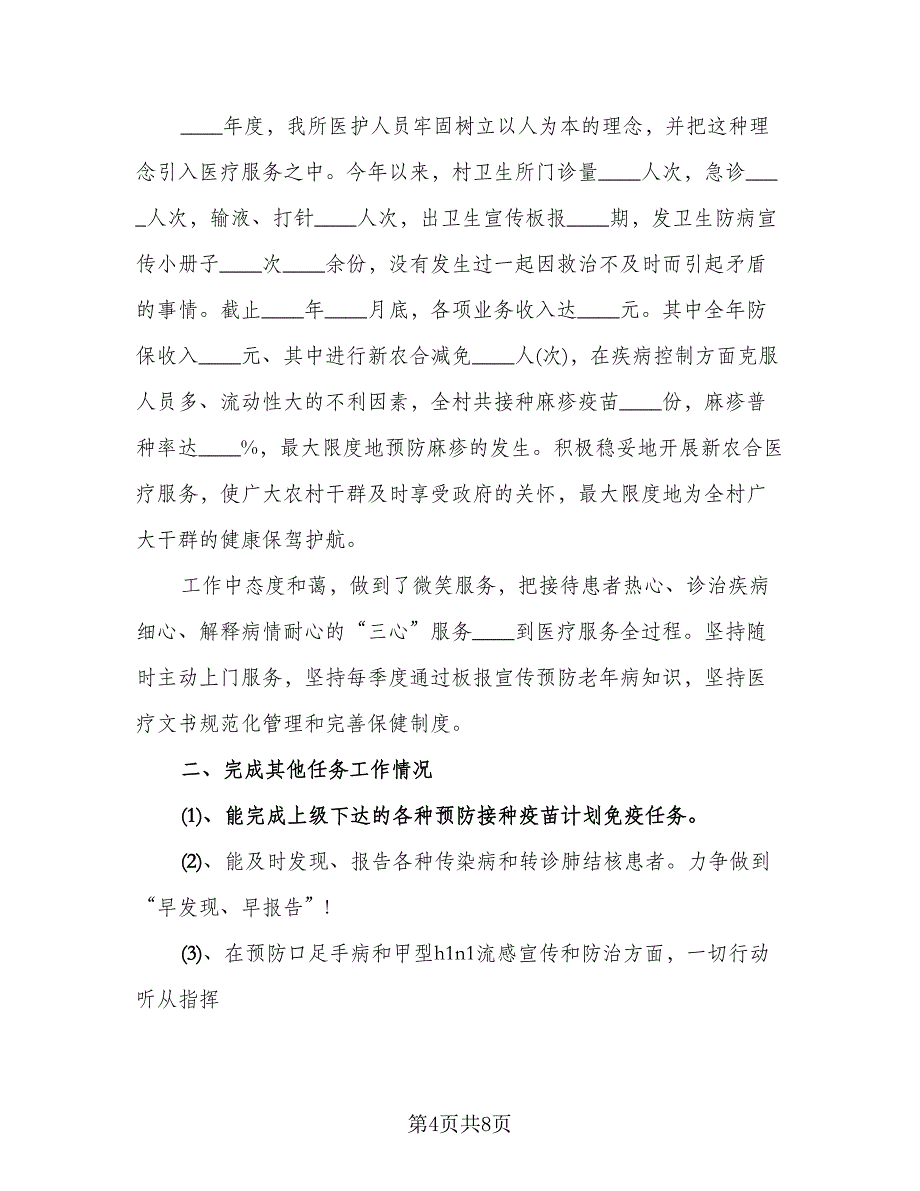 ____年度，我所医护人员牢固树立以人为本的理念，并把这种理
念引入医疗服务之中。今年以来，村卫生所门诊量____人次，急诊___
_人次，输液、打针____人次，出卫生宣传板报____期，发卫生防病宣
传小册子____次____余份，没有发生过一起因救治不及时而引起矛盾
的事情。截止____年____月底，各项业务收入达____元。其中全年防
保收入____元、其中进行新农合减免____人(次)，在疾病控制方面克服
人员多、流动性大的不利因素，全村共接种麻疹疫苗____份，麻疹普
种率达____%，最大限度地预防麻疹的发生。积极稳妥地开展新农合医
疗服务，使广大农村干群及时享受政府的关怀，最大限度地为全村广
大干群的健康保驾护航。
工作中态度和蔼，做到了微笑服务，把接待患者热心、诊治疾病
细心、解释病情耐心的“三心”服务____到医疗服务全过程。坚持随
时主动上门服务，坚持每季度通过板报宣传预防老年病知识，坚持医
疗文书规范化管理和完善保健制度。
二、完成其他任务工作情况
(1)、能完成上级下达的各种预防接种疫苗计划免疫任务。
(2)、能及时发现、报告各种传染病和转诊肺结核患者。力争做到
“早发现、早报告”!
(3)、在预防口足手病和甲型h1n1流感宣传和防治方面，一切行动
听从指挥
第4页共8页